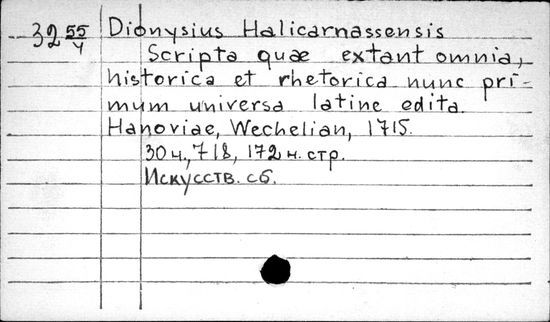 32 55/4
Dionysius Halicarnassensis
Scripta quæ extant omnia,
historica et rhetorica nunc pri-
mum universa latine edita.
Hanoviae, Wechelian, 1715.
30 н., 718, 172 н. стр.
Искусств. сб.